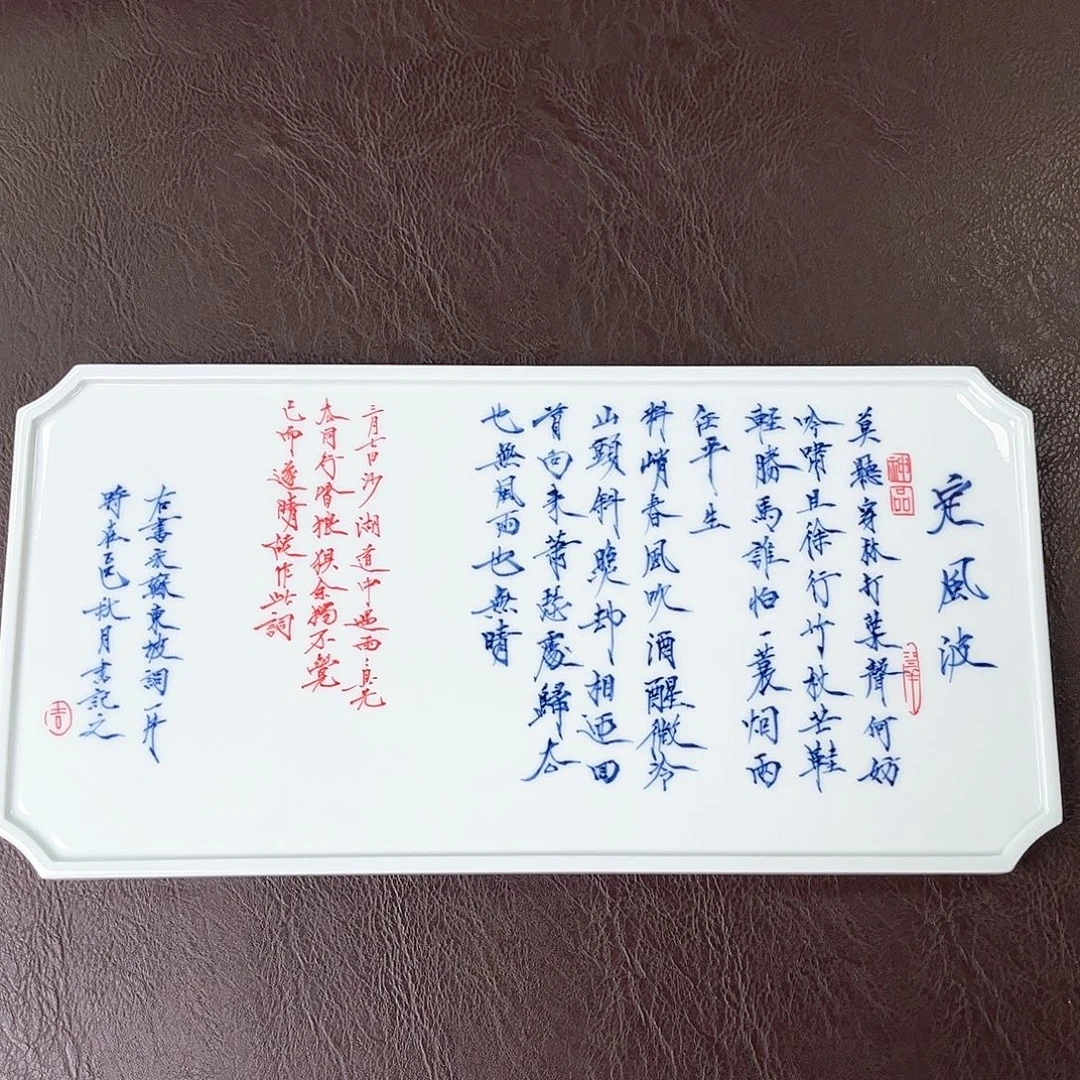 定風波
神品
莫聽穿林打葉聲何妨
吟嘯且徐行竹杖芒鞋
輕勝馬誰怕一蓑烟雨
任平生
料峭春風吹酒醒微冷
山頭斜照却〻相迎回
首向来蕭瑟處歸去
也無風雨也無晴
三月七日沙湖道中遇雨〻具先
去同行皆狼狽余獨不覺
已而遂晴故作此詞
右書宋蘇東坡詞一片
時在乙巳秋月書記之
吉